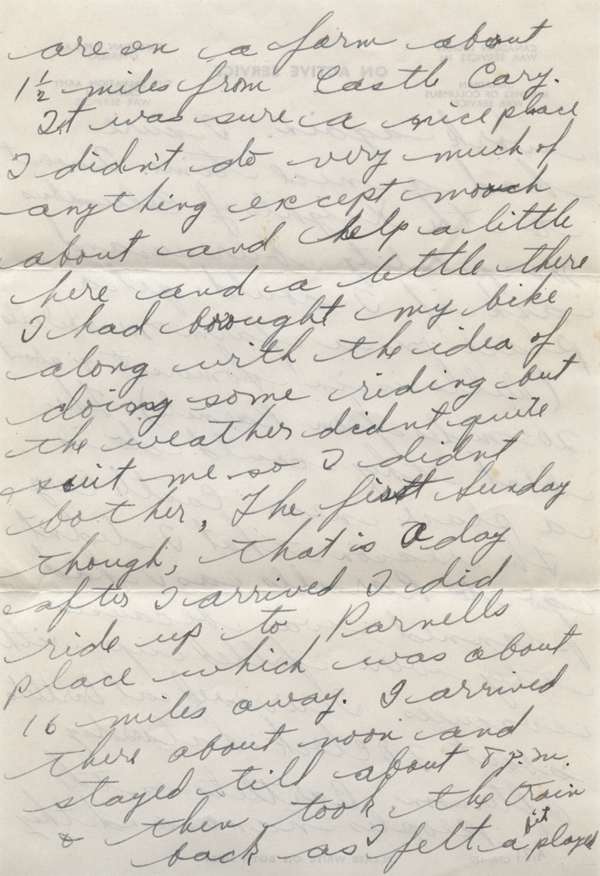 are on a farm about
1½ miles from Castle Cary.
It was sure a nice place
I didn't do very much of
anything except mooch
about and help a little
here and a little there
I had brought my bike
along with the idea of
doing some riding but
the weather didnt quite
suit me so I didnt
bother, The first Sunday
though, that is a day
after I arrived I did
ride up to Parnells
place which was about
16 miles away. I arrived
there about noon and
stayed till about 8 p.m.
& then took the train
back as I felt a bit played